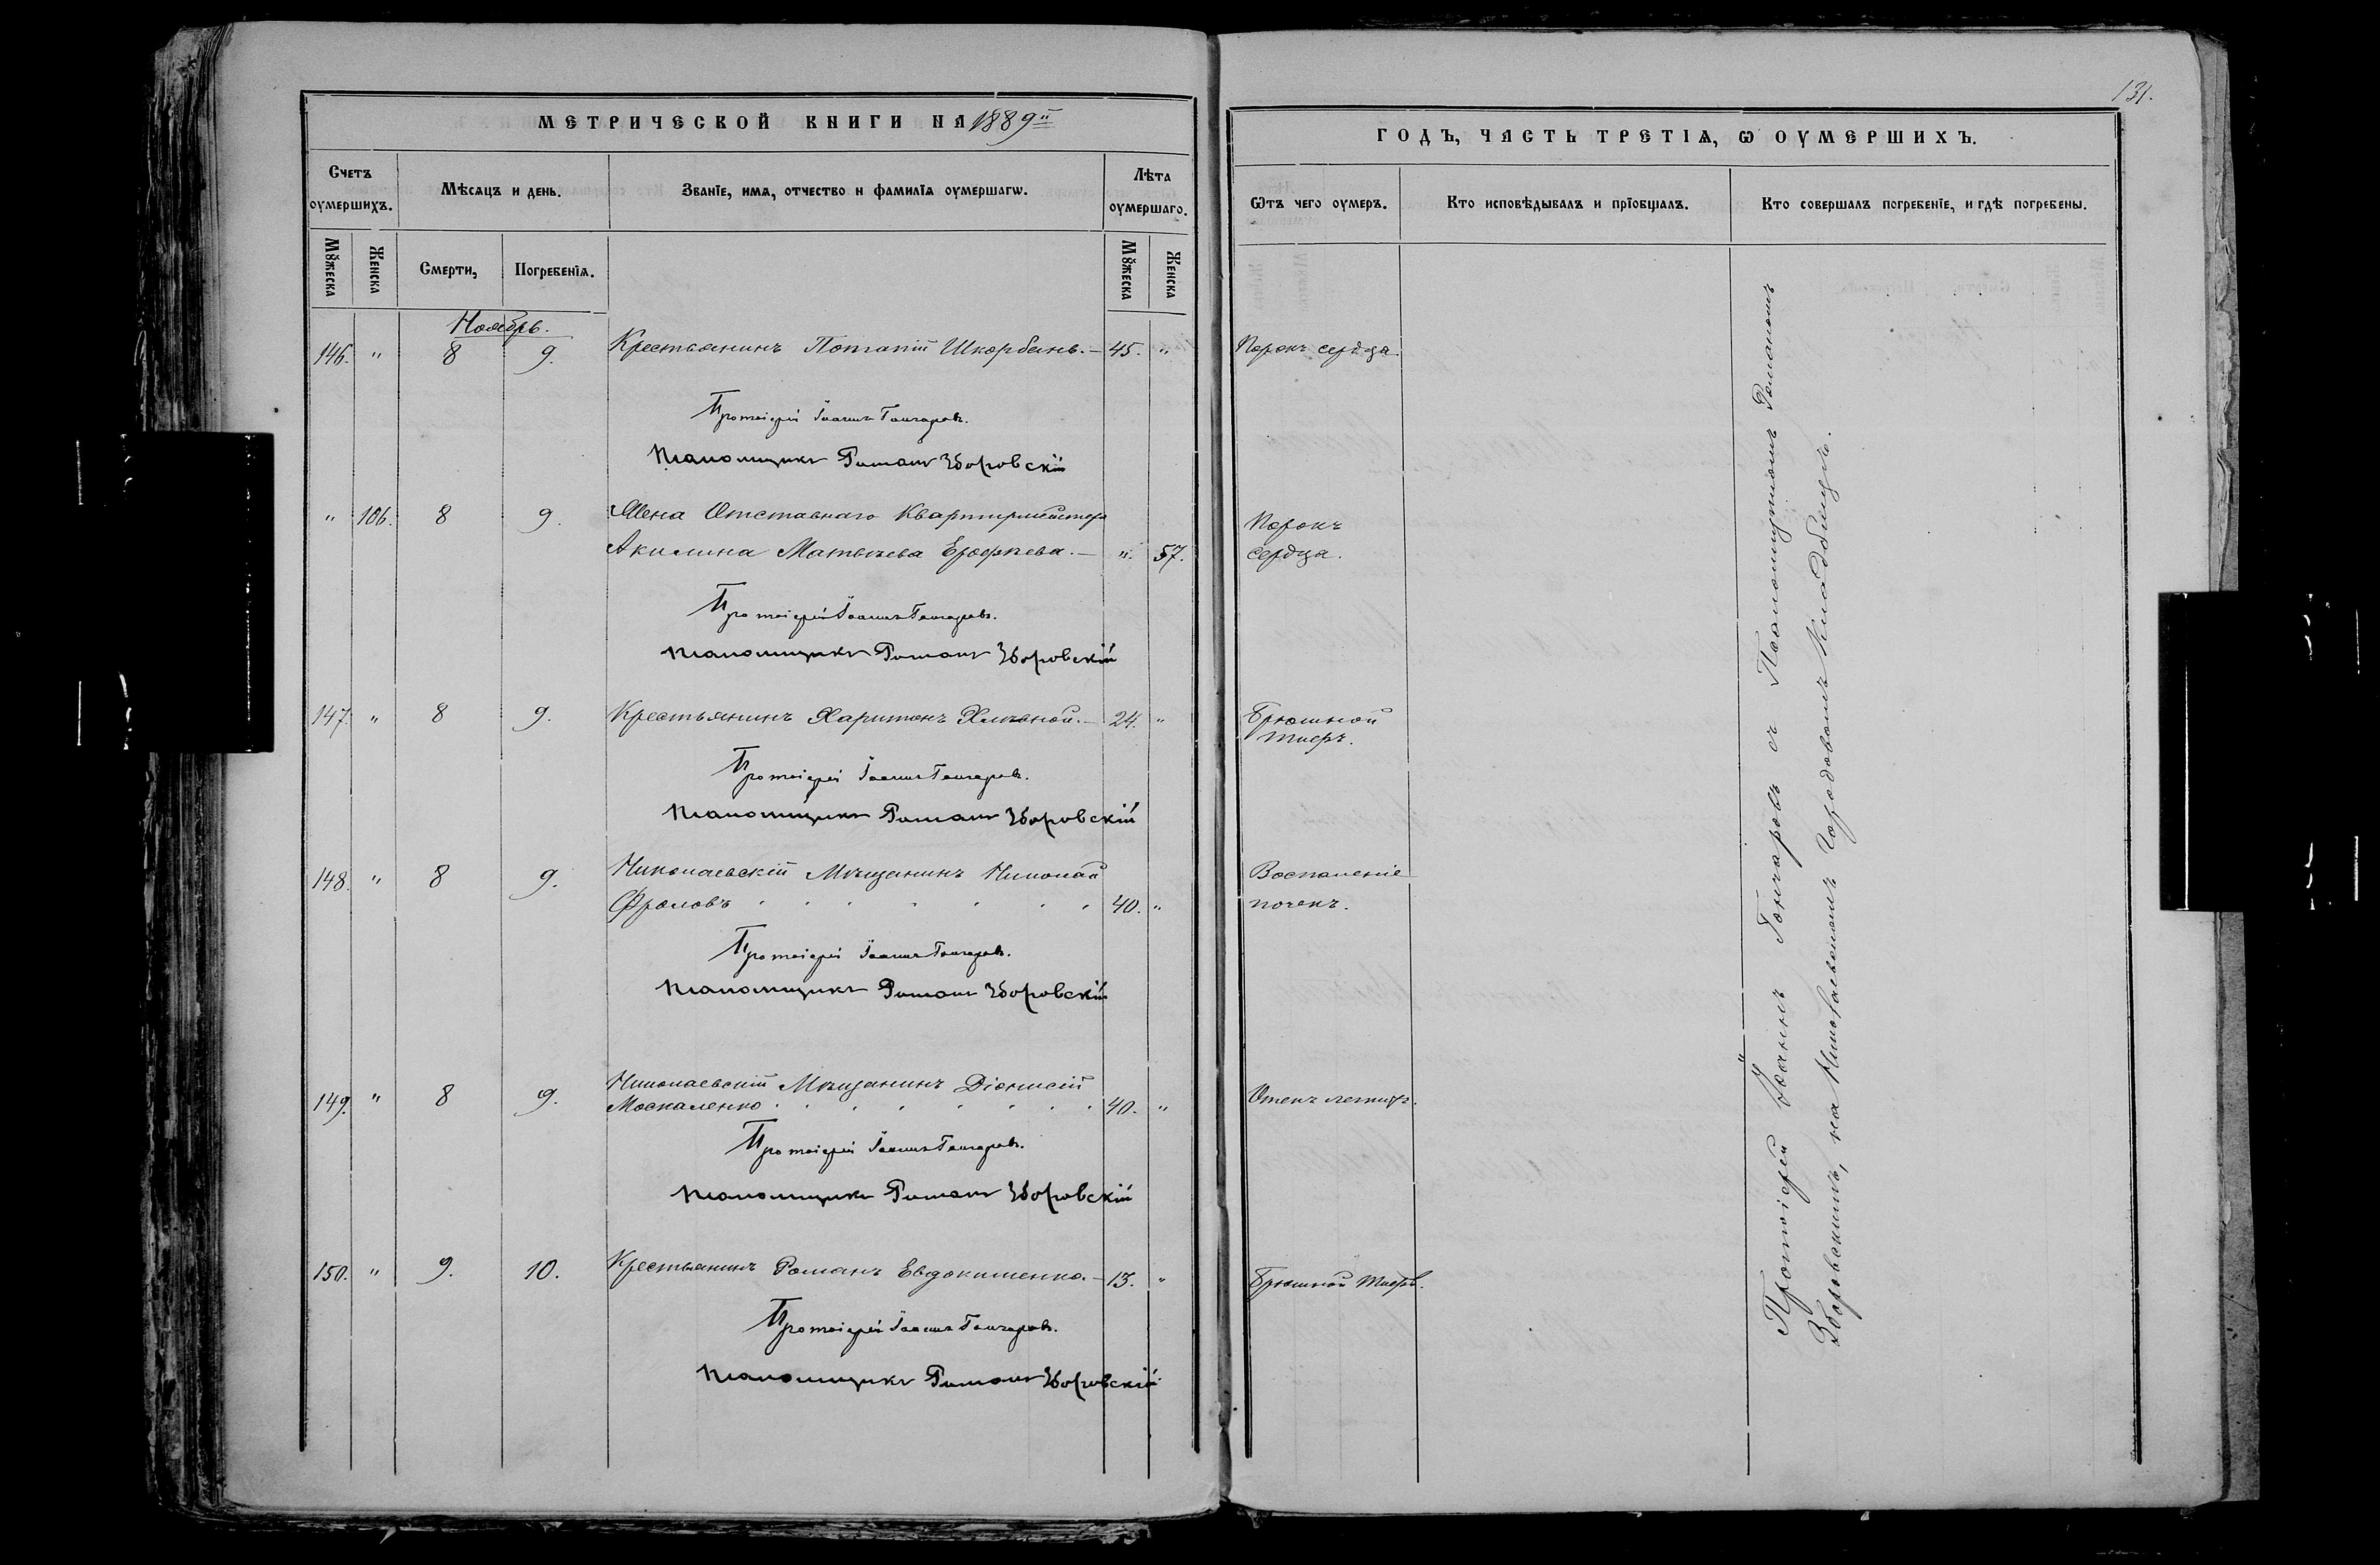 МЕТРИЧЕСКОЙ КНИГИ НА 1889й
Счетъ оумершихъ.
Мѣсяцъ и день.
Званїе, имя, отчество и фамилїя оумершагѡ.
Лѣта оумершаго.
Мꙋжеска
Женска
Смерти,
Погребенїя.
Мꙋжеска
Женска
Ноябрь.
146. " 8 9. Крестьянинъ Потапій Шкорбань. 45. "
Протоіерей Іоаннъ Гончаровъ.
Псаломщикъ Романъ Зборовскій
" 106. 8 9. Жена Отставнаго Квартирмейстера
Акилина Матвѣева Ерофѣева. " 57.
Протоіерей Іоаннъ Гончаровъ.
Псаломщикъ Романъ Зборовскій
147. " 8 9. Крестьянинъ Харитонъ 24. "
Протоіерей Іоаннъ Гончаровъ.
Псаломщикъ Романъ Зборовскій
148. " 8 9. Николаевскій Мѣщанинъ Николай
Фроловъ 40. "
Протоіерей Іоаннъ Гончаровъ.
Псаломщикъ Романъ Зборовскій
149. " 8 9. Николаевскій Мѣщанинъ Діонисій
Москаленко 40. "
Протоіерей Іоаннъ Гончаровъ.
Псаломщикъ Романъ Зборовскій
150. " 9. 10. Крестьянинъ Романъ Евдокименко. 13. "
Протоіерей Іоаннъ Гончаровъ.
Псаломщикъ Романъ Зборовскій
131.
ГОДЪ, ЧАСТЬ ТРЕТІѦ, Ѡ ОУМЕРШИХЪ.
Ѿтъ чего оумеръ.
Кто исповѣдывалъ и прїобщалъ.
Кто совершалъ погребенїе, и гдѣ погребены.
Порокъ сердца.
Порокъ
сердца.
Брюшной
тифъ.
Воспаленіе
почекъ.
Отекъ легкихъ.
Брюшной тифъ.
Протоіерей Іоаннъ Гончаровъ съ Псаломщикомъ Романомъ
Зборовскимъ, на Николаевскомъ Городовомъ Кладбищѣ.